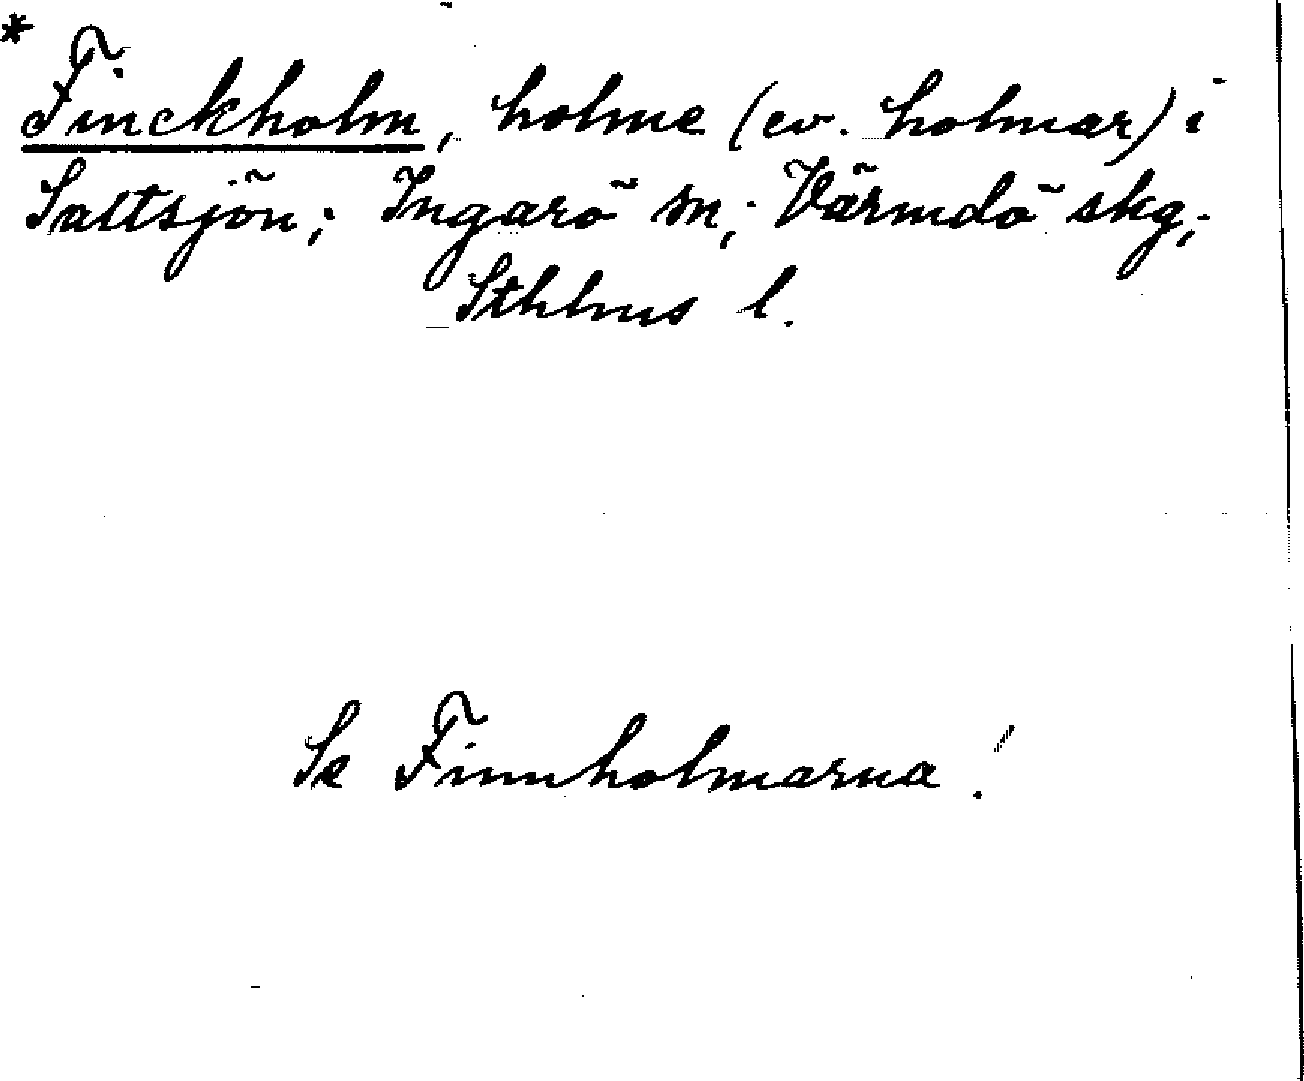 * Finckholm, holme (ev. holmar) i
Saltsjön; Ingarö sn; Värmdö skg;
Sthlms l.
Se Finnholmarna!